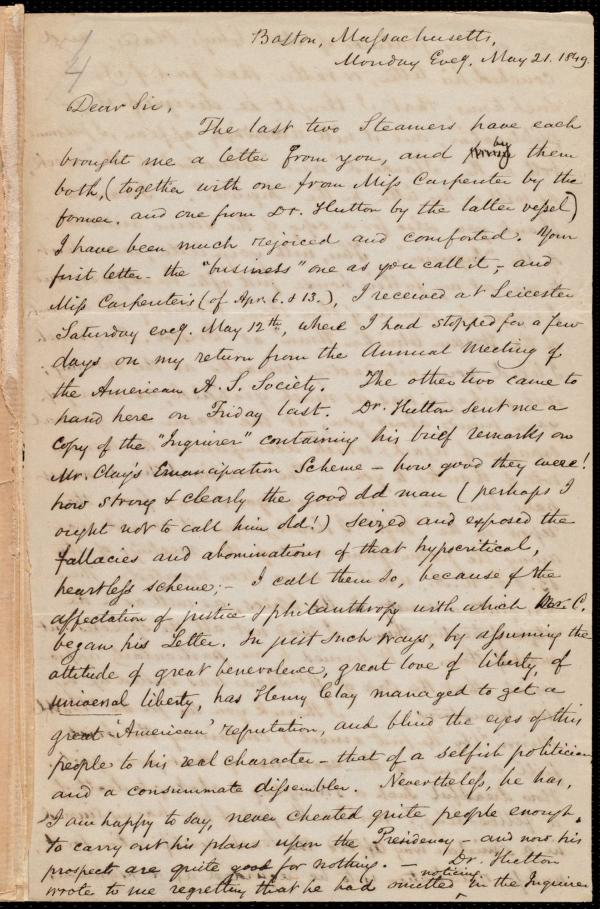 1/4
Boston, Massachusetts,
Monday Eveg. May 21. 1849.
Dear Sir,
The last two Steamers have each
brought me a letter from you, and by them
both, (together with one from Miss Carpenter by the
former, and one from Dr. Hutton by the latter vessel)
I have been much rejoiced and comforted. Your
first letter - the "business" one as you call it, - and
Miss Carpenter's (of Apr. 6. & 13.), I received at Leicester
Saturday eveg. May 12th, where I had stopped for a few
days on my return from the Annual Meeting of
the American A. S. Society. The other two came to
hand here on Friday last. Dr. Hutton sent me a
copy of the "Inquirer" containing his brief remarks on
Mr. Clay's Emancipation Scheme - how good they were!
how strong & clearly the good old man (perhaps I
ought not to call him old!) seized and exposed the
fallacies and abominations of that hypocritical,
heartless scheme; - I call them so, because of the
affectation of justice & philanthropy with which Mr. C.
began his Letter. In just such ways, by assuming the
attitude of great benevolence, great love of liberty, of
universal liberty, has Henry Clay managed to get a
great 'American' reputation, and blind the eyes of this
people to his real character - that of a selfish politician,
and a consummate dissembler. Nevertheless, he has,
I am happy to say, never cheated quite people enough,
to carry out his plans upon the Presidency - and now his
prospects are quite good for nothing. - Dr. Hutton
wrote to me regretting that he had omitted noticing in the Inquirer